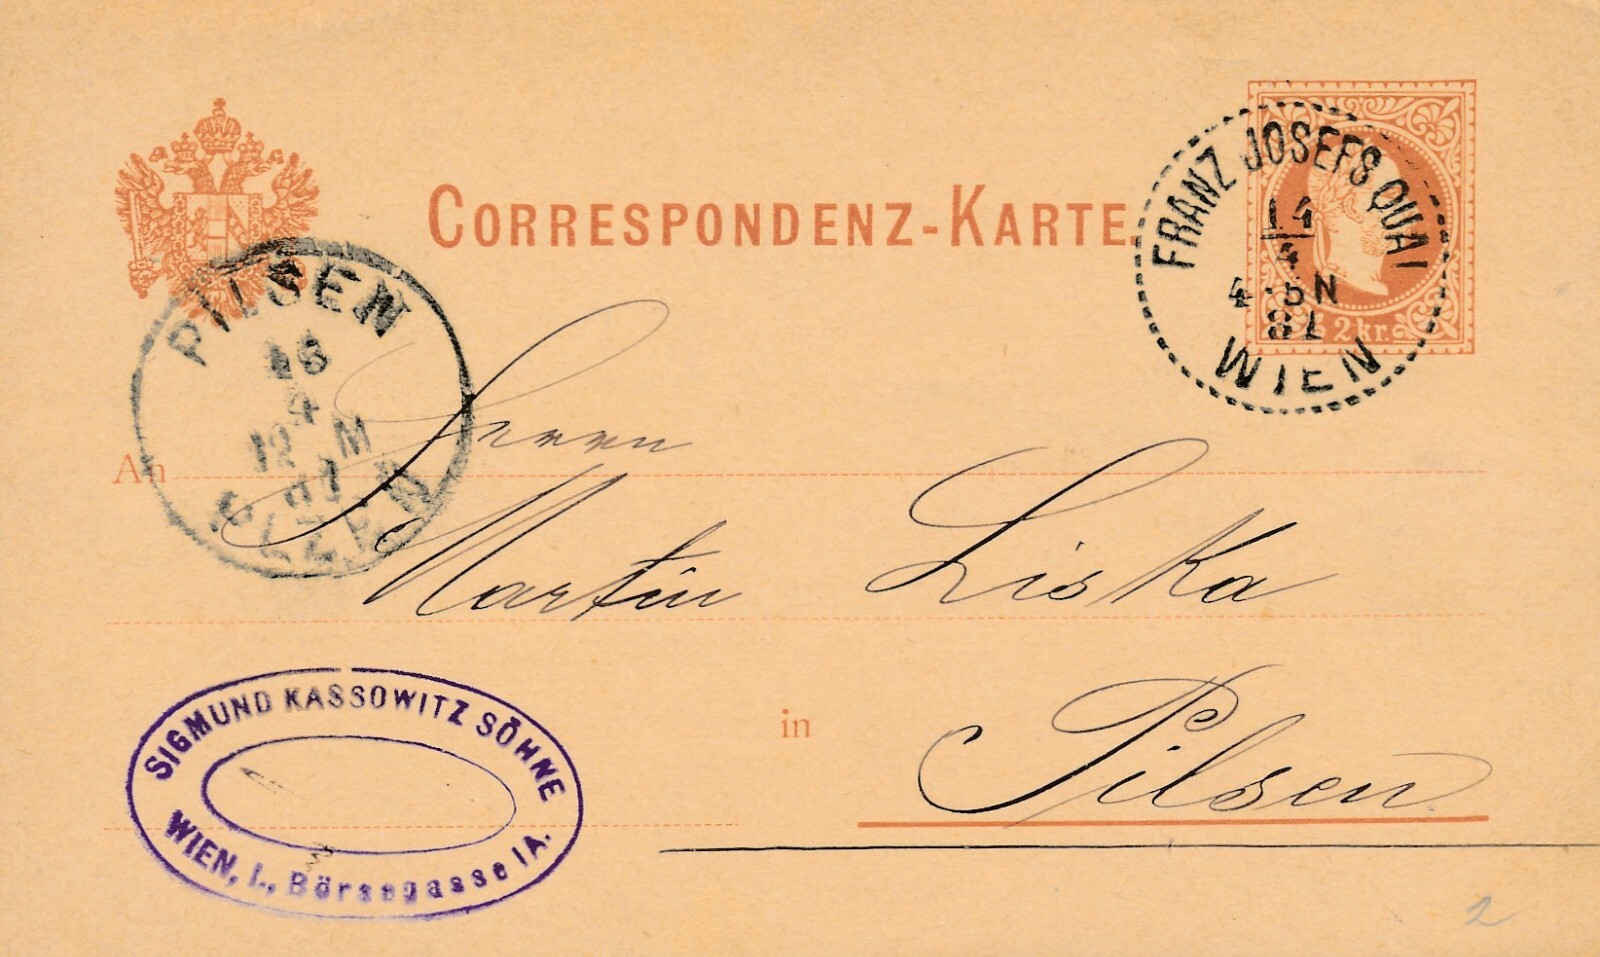 CORRESPONDENZ-KARTE.
FRANZ JOSEFS QUAI
14
4
4·5N
81
WIEN
2 kr.
PILSEN
16
4
12 M
PLZEŇ
An Herrn
Martin Liska
in Pilsen
SIGMUND KASSOWITZ SÖHNE
WIEN, I., Börsegasse 1A.
2